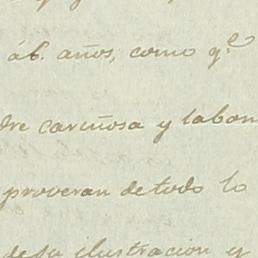 á 6. años, como q.e
dre cariñosa y labori
proveran de todo lo
de su ilustracion y